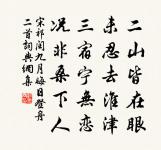 二山皆在眼
未忍去淮津
三宿宁無恋
况非桑下人
宋祁閏九月晦日登舟
二首詞典網集